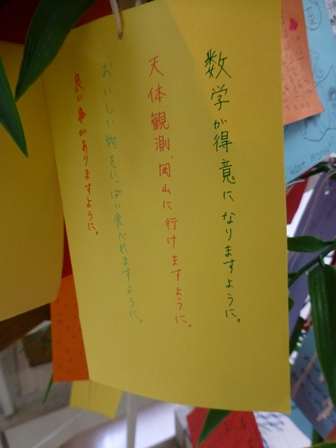 数学が得意になりますように。
天体観測、岡山に行けますように。
おいしい物をいっぱい食べれますように。
良い事がありますように。